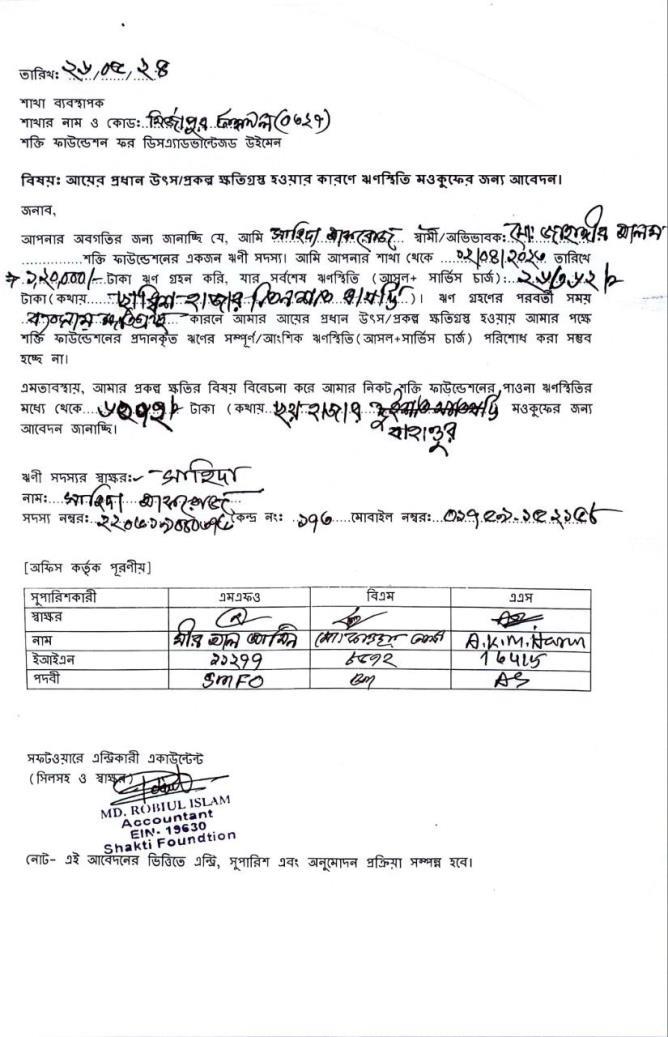 তারিখ: ২৬/০৫/২৪
শাখা ব্যবস্থাপক
শাখার নাম ও কোড: মির্জাপুর (০৬২৭)
শক্তি ফাউন্ডেশন ফর ডিসএ্যাডভান্টেজড উইমেন
বিষয়: আয়ের প্রধান উৎস/প্রকল্প ক্ষতিগ্রস্ত হওয়ার কারণে ঋণস্থিতি মওকুফের জন্য আবেদন।
জনাব,
আপনার অবগতির জন্য জানাচ্ছি যে, আমি সাহিদা আফরোজ স্বামী/অভিভাবক: মো: জাহাঙ্গীর আলম
শক্তি ফাউন্ডেশনের একজন ঋণী সদস্য। আমি আপনার শাখা থেকে ০২/০৪/২০২৩ তারিখে
১,২০,০০০/- টাকা ঋণ গ্রহন করি, যার সর্বশেষ ঋণস্থিতি (আসল+ সার্ভিস চার্জ):
টাকা (কথায় হাজার তিনশত )। ঋণ গ্রহণের পরবর্তী সময়
কারনে আমার আয়ের প্রধান উৎস/প্রকল্প ক্ষতিগ্রস্ত হওয়ায় আমার পক্ষে
শক্তি ফাউন্ডেশনের প্রদানকৃত ঋণের সম্পূর্ণ/আংশিক ঋণস্থিতি (আসল+সার্ভিস চার্জ) পরিশোধ করা সম্ভব
হচ্ছে না।
এমতাবস্থায়, আমার প্রকল্প ক্ষতির বিষয় বিবেচনা করে আমার নিকট শক্তি ফাউন্ডেশনের পাওনা ঋণস্থিতির
মধ্যে থেকে ৬২৭২/- টাকা (কথায় ছয় হাজার দুইশত মওকুফের জন্য
বাহাত্তুর
আবেদন জানাচ্ছি।
ঋণী সদস্যর স্বাক্ষর:- সাহিদা
নাম: সাহিদা আফরোজ
সদস্য নম্বর: কেন্দ্র নং: ১৭৬ মোবাইল নম্বর:
[অফিস কর্তৃক পূরণীয়]
সুপারিশকারী এমএফও বিএম এএস
স্বাক্ষর
নাম মীর আল আমিন A.K.M. Harun
ইআইএন ২১২৭৭ ৮৫৭২ 16415
পদবী SMFO BM AS
সফটওয়ারে এন্ট্রিকারী একাউন্টেন্ট
(সিলসহ ও স্বাক্ষর)
MD. ROBIUL ISLAM
Accountant
EIN- 19630
Shakti Foundtion
নোট- এই আবেদনের ভিত্তিতে এন্ট্রি, সুপারিশ এবং অনুমোদন প্রক্রিয়া সম্পন্ন হবে।